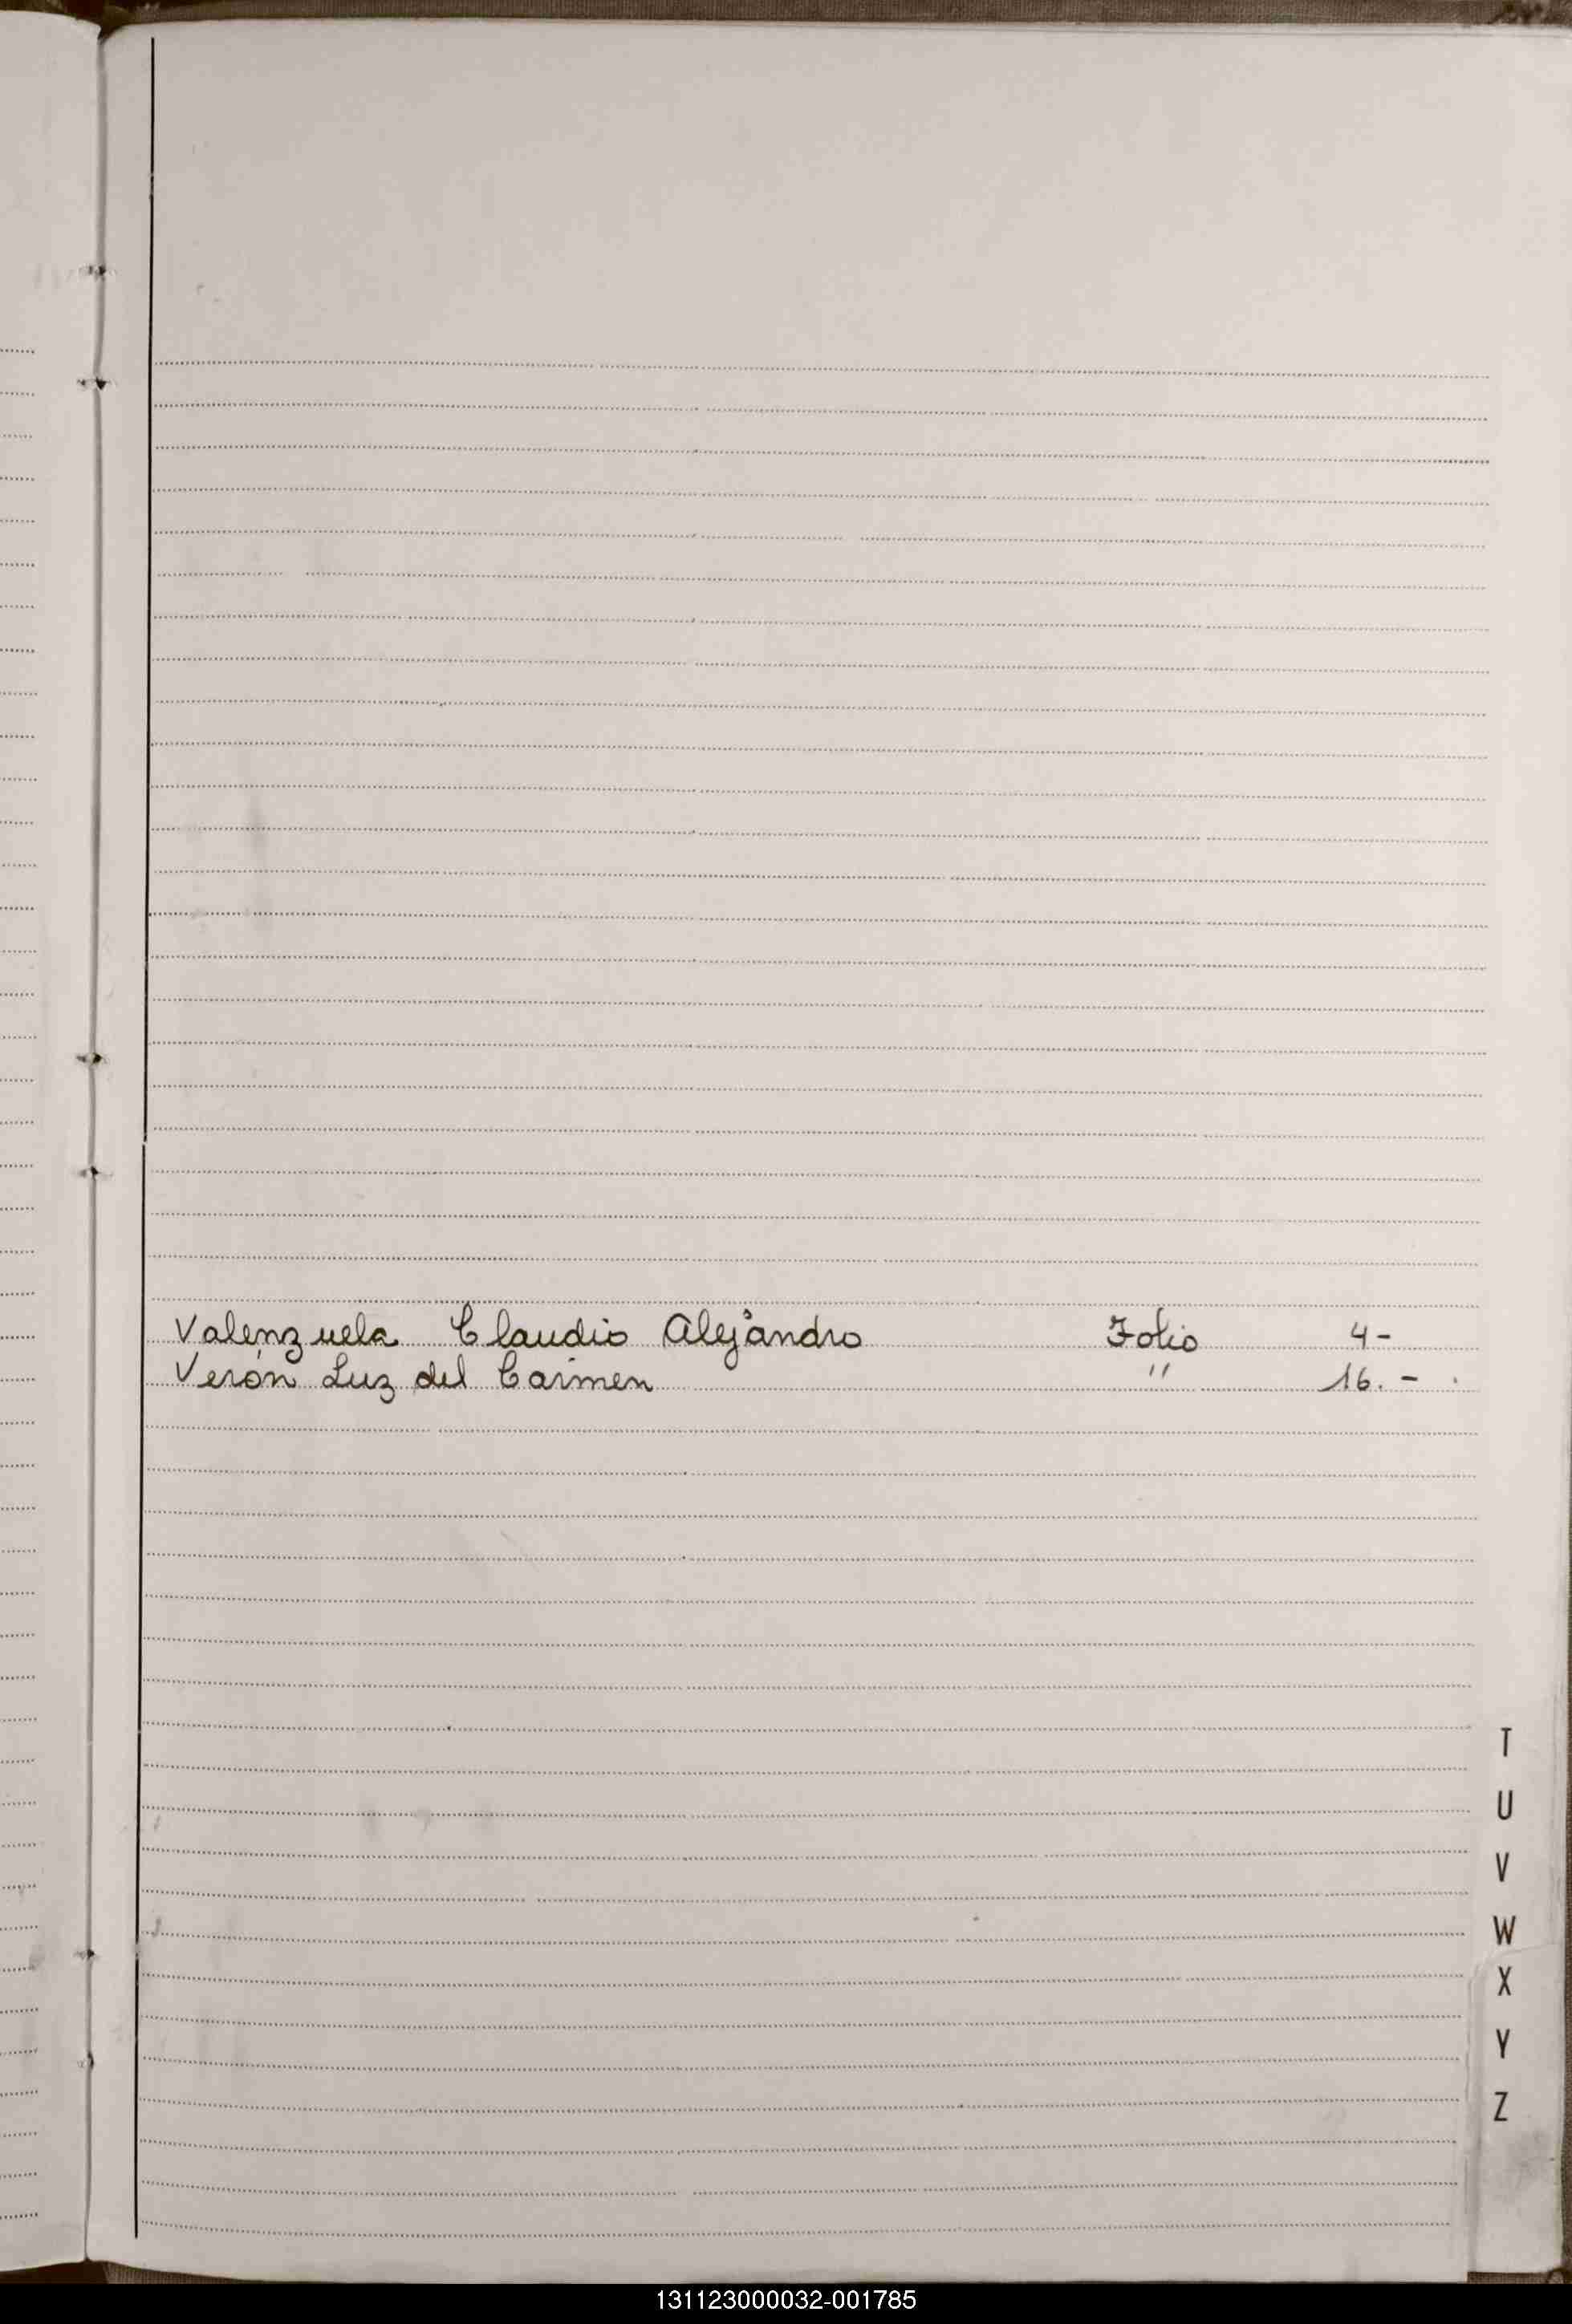 Valenzuela Claudio Alejandro Folio 4-
Verón Luz del Carmen " 16.-
T
U
V
W
X
Y
Z
131123000032-001785